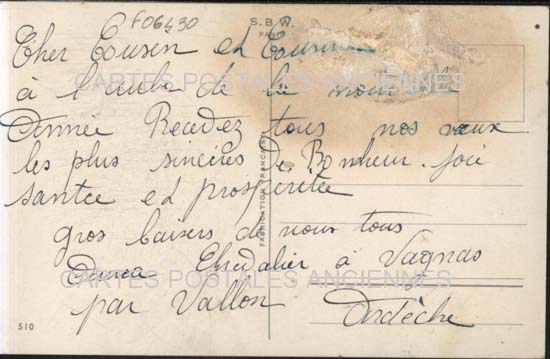 F06430
S.B.W.
Cher Cousin et Cousine
à l'aube de la nouvelle
Année Recevez tous nos vœux
les plus sincères de Bonheur. joie
santée et prospéritée
gros baisers de nous tous
Chevalier à Vagnas
par Vallon Ardèche
FABRICATION FRANÇAISE
510
CARTES POSTALES ANCIENNES
CARTES POSTALES ANCIENNES